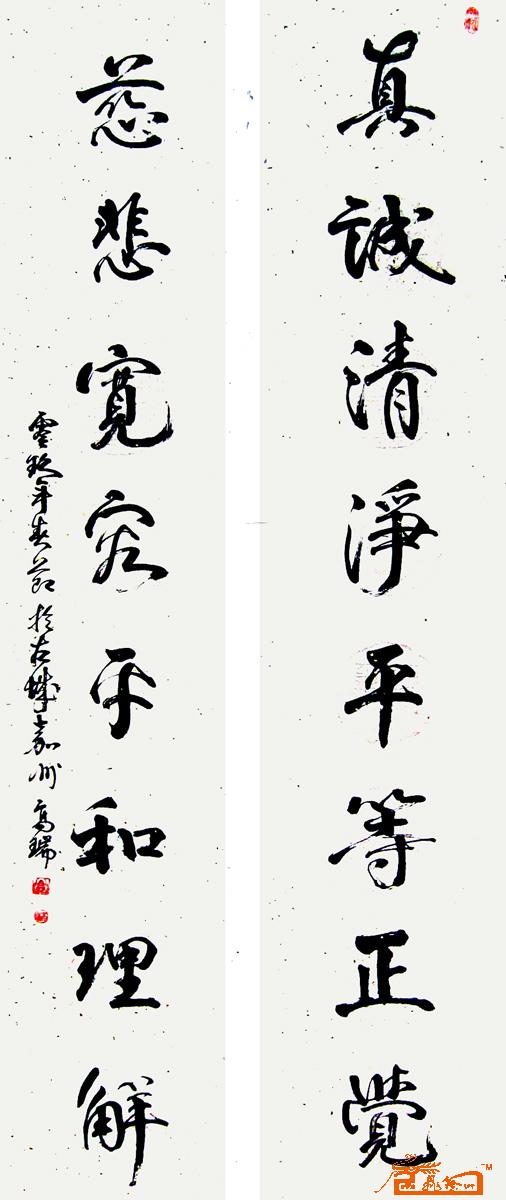 真誠清淨平等正覺
慈悲寬容平和理解
零玖年春節於古城嘉州高瑞